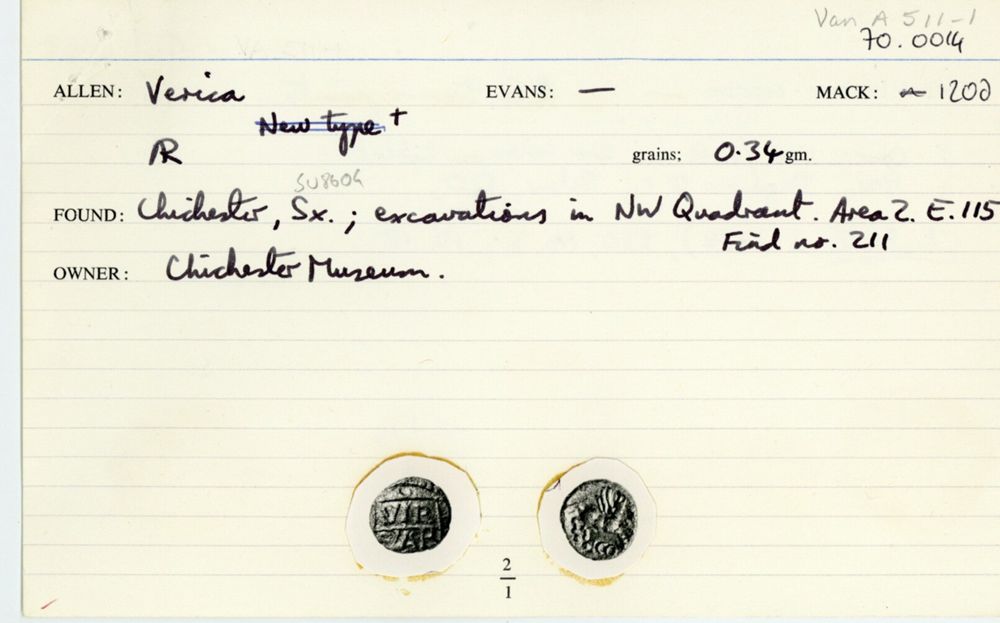 Van A 511-1
70.0014
ALLEN: Verica EVANS: — MACK: 120d
New type +
AR grains; 0.34 gm.
SU8604
FOUND: Chichester, Sx.; excavations in NW Quadrant. Area 2. E.115
Find no. 211
OWNER: Chichester Museum.
VIR
VAR
2
1